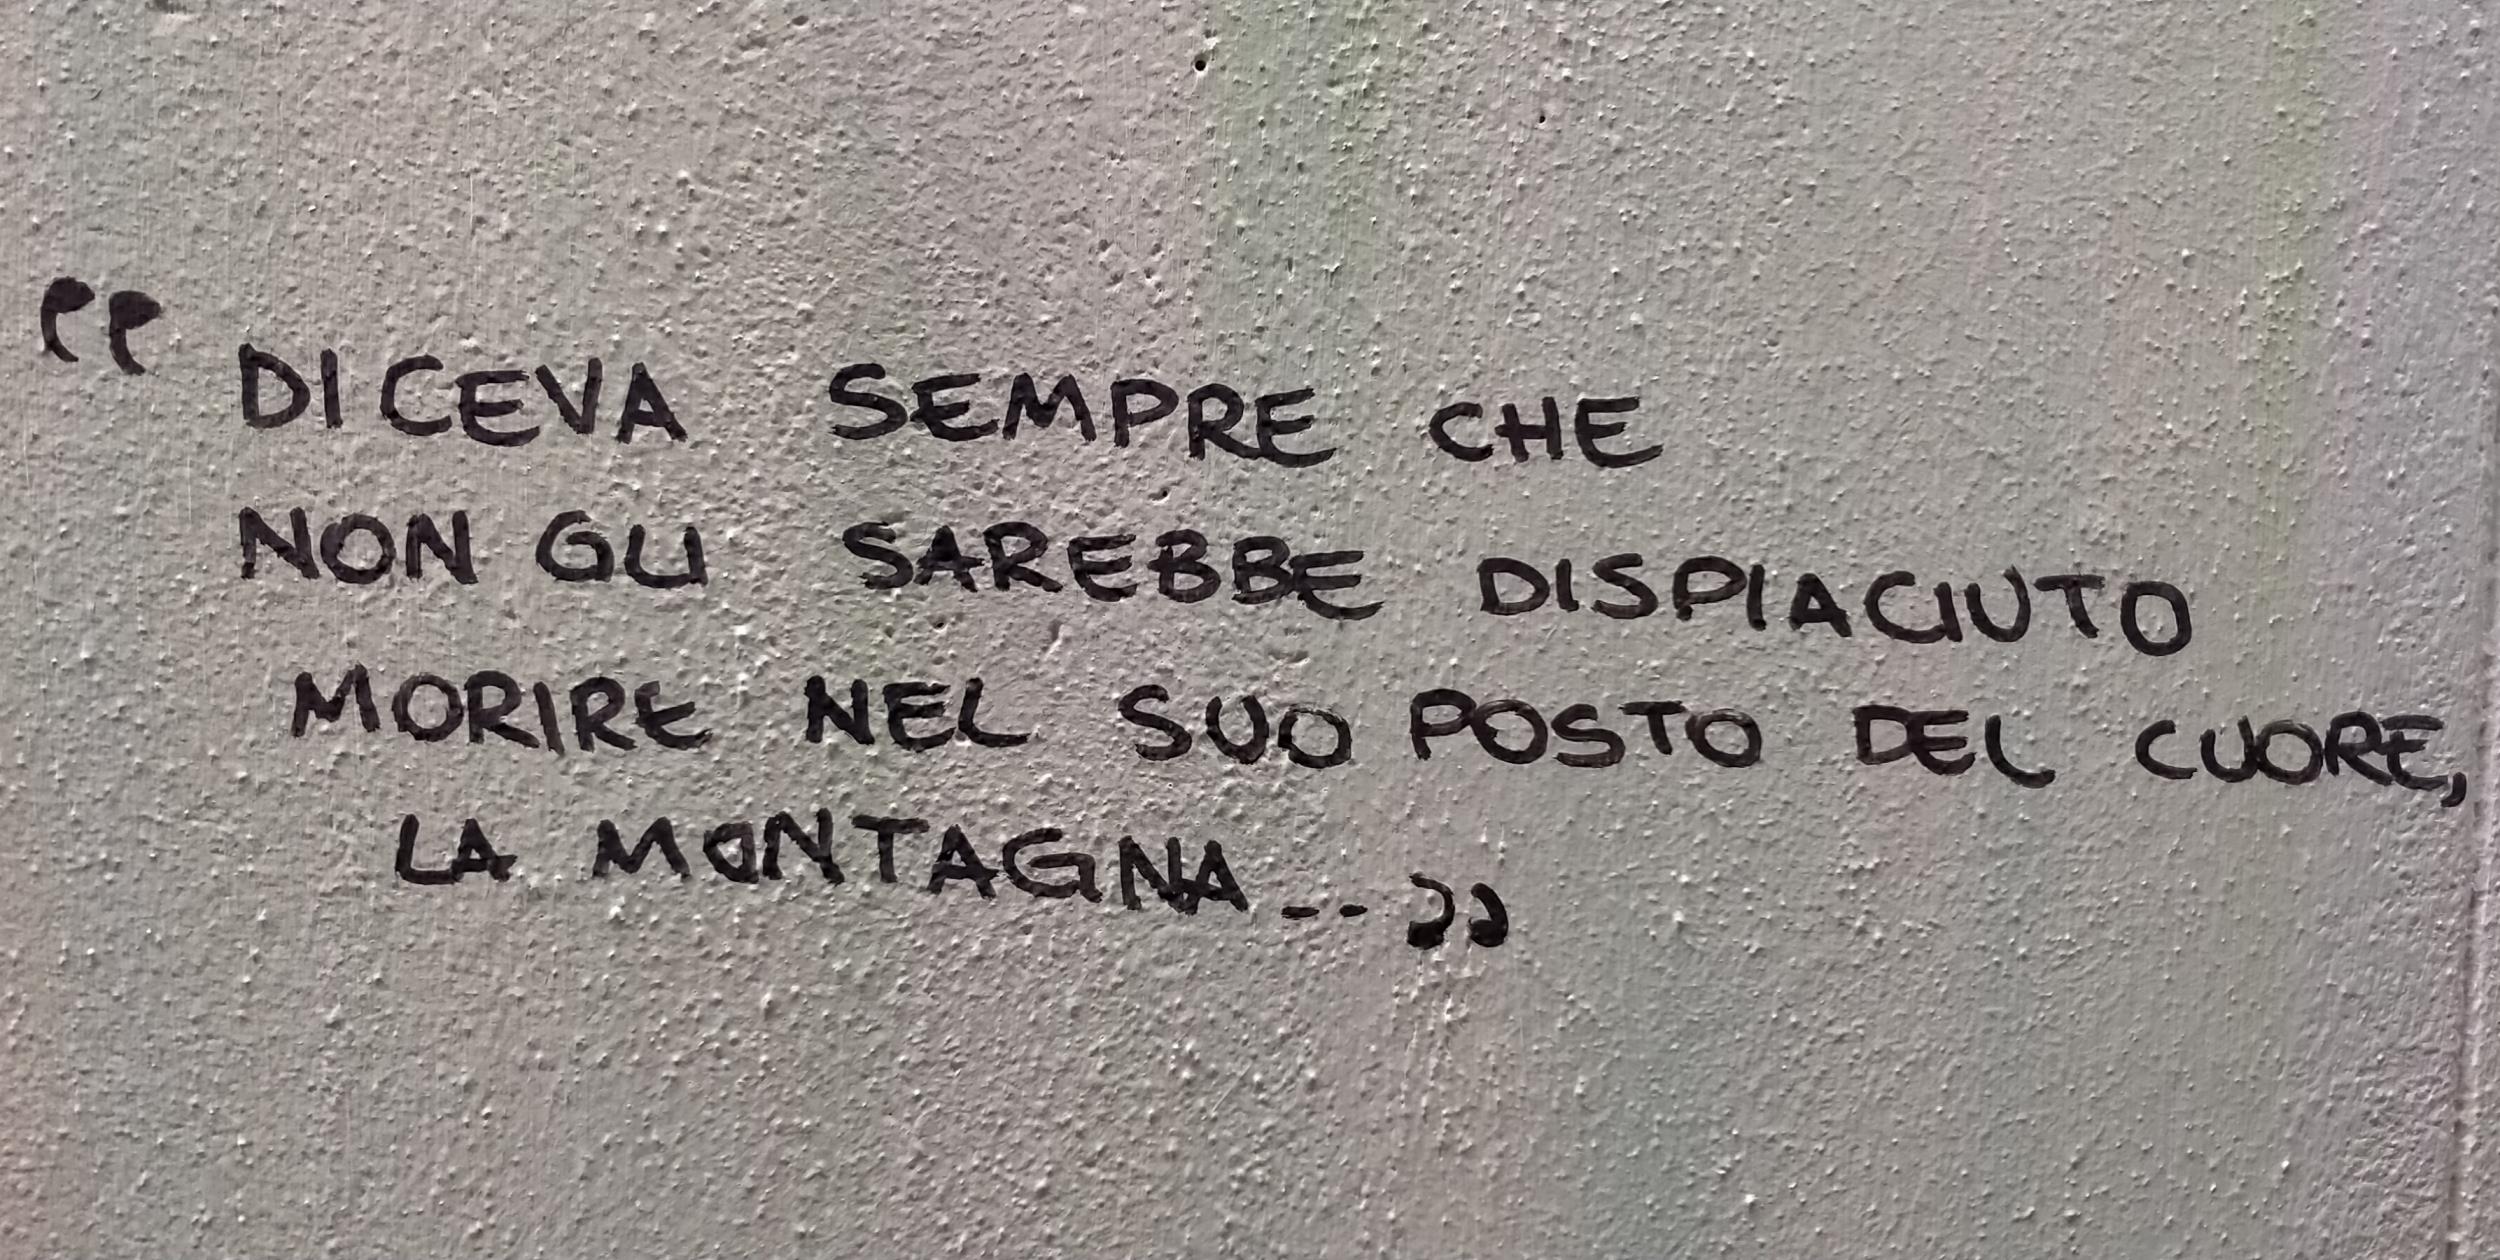 “DICEVA SEMPRE CHE
NON GLI SAREBBE DISPIACIUTO
MORIRE NEL SUO POSTO DEL CUORE,
LA MONTAGNA..”